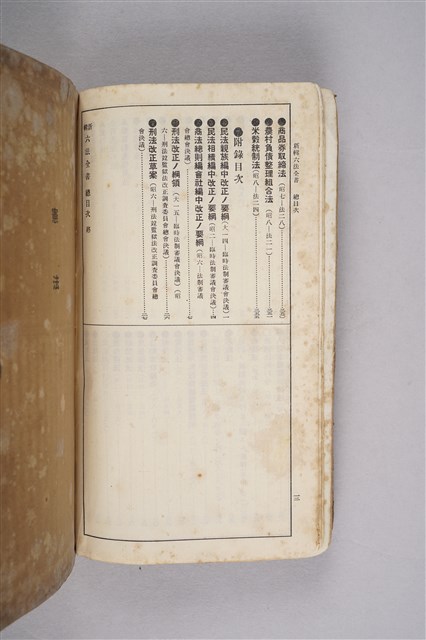 新輯六法全書 總目次
商品券取締法(昭七—法二八)
農村負債整理組合法(昭八—法二一)
米穀統制法(昭八—法二四)
附錄目次
民法親族編中改正ノ要綱(大一四—臨時法制審議會決議)一
民法相續編中改正ノ要綱(昭二—臨時法制審議會決議)四
商法總則編會社編中改正ノ要綱(昭六—法制審議
會總會決議)七
刑法改正ノ綱領(大一五—臨時法制審議會決議)(昭
六—刑法竝監獄法改正調査委員會總會決議)
刑法改正草案(昭六—刑法竝監獄法改正調査委員會總
會決議)
六法全書 總目次 終